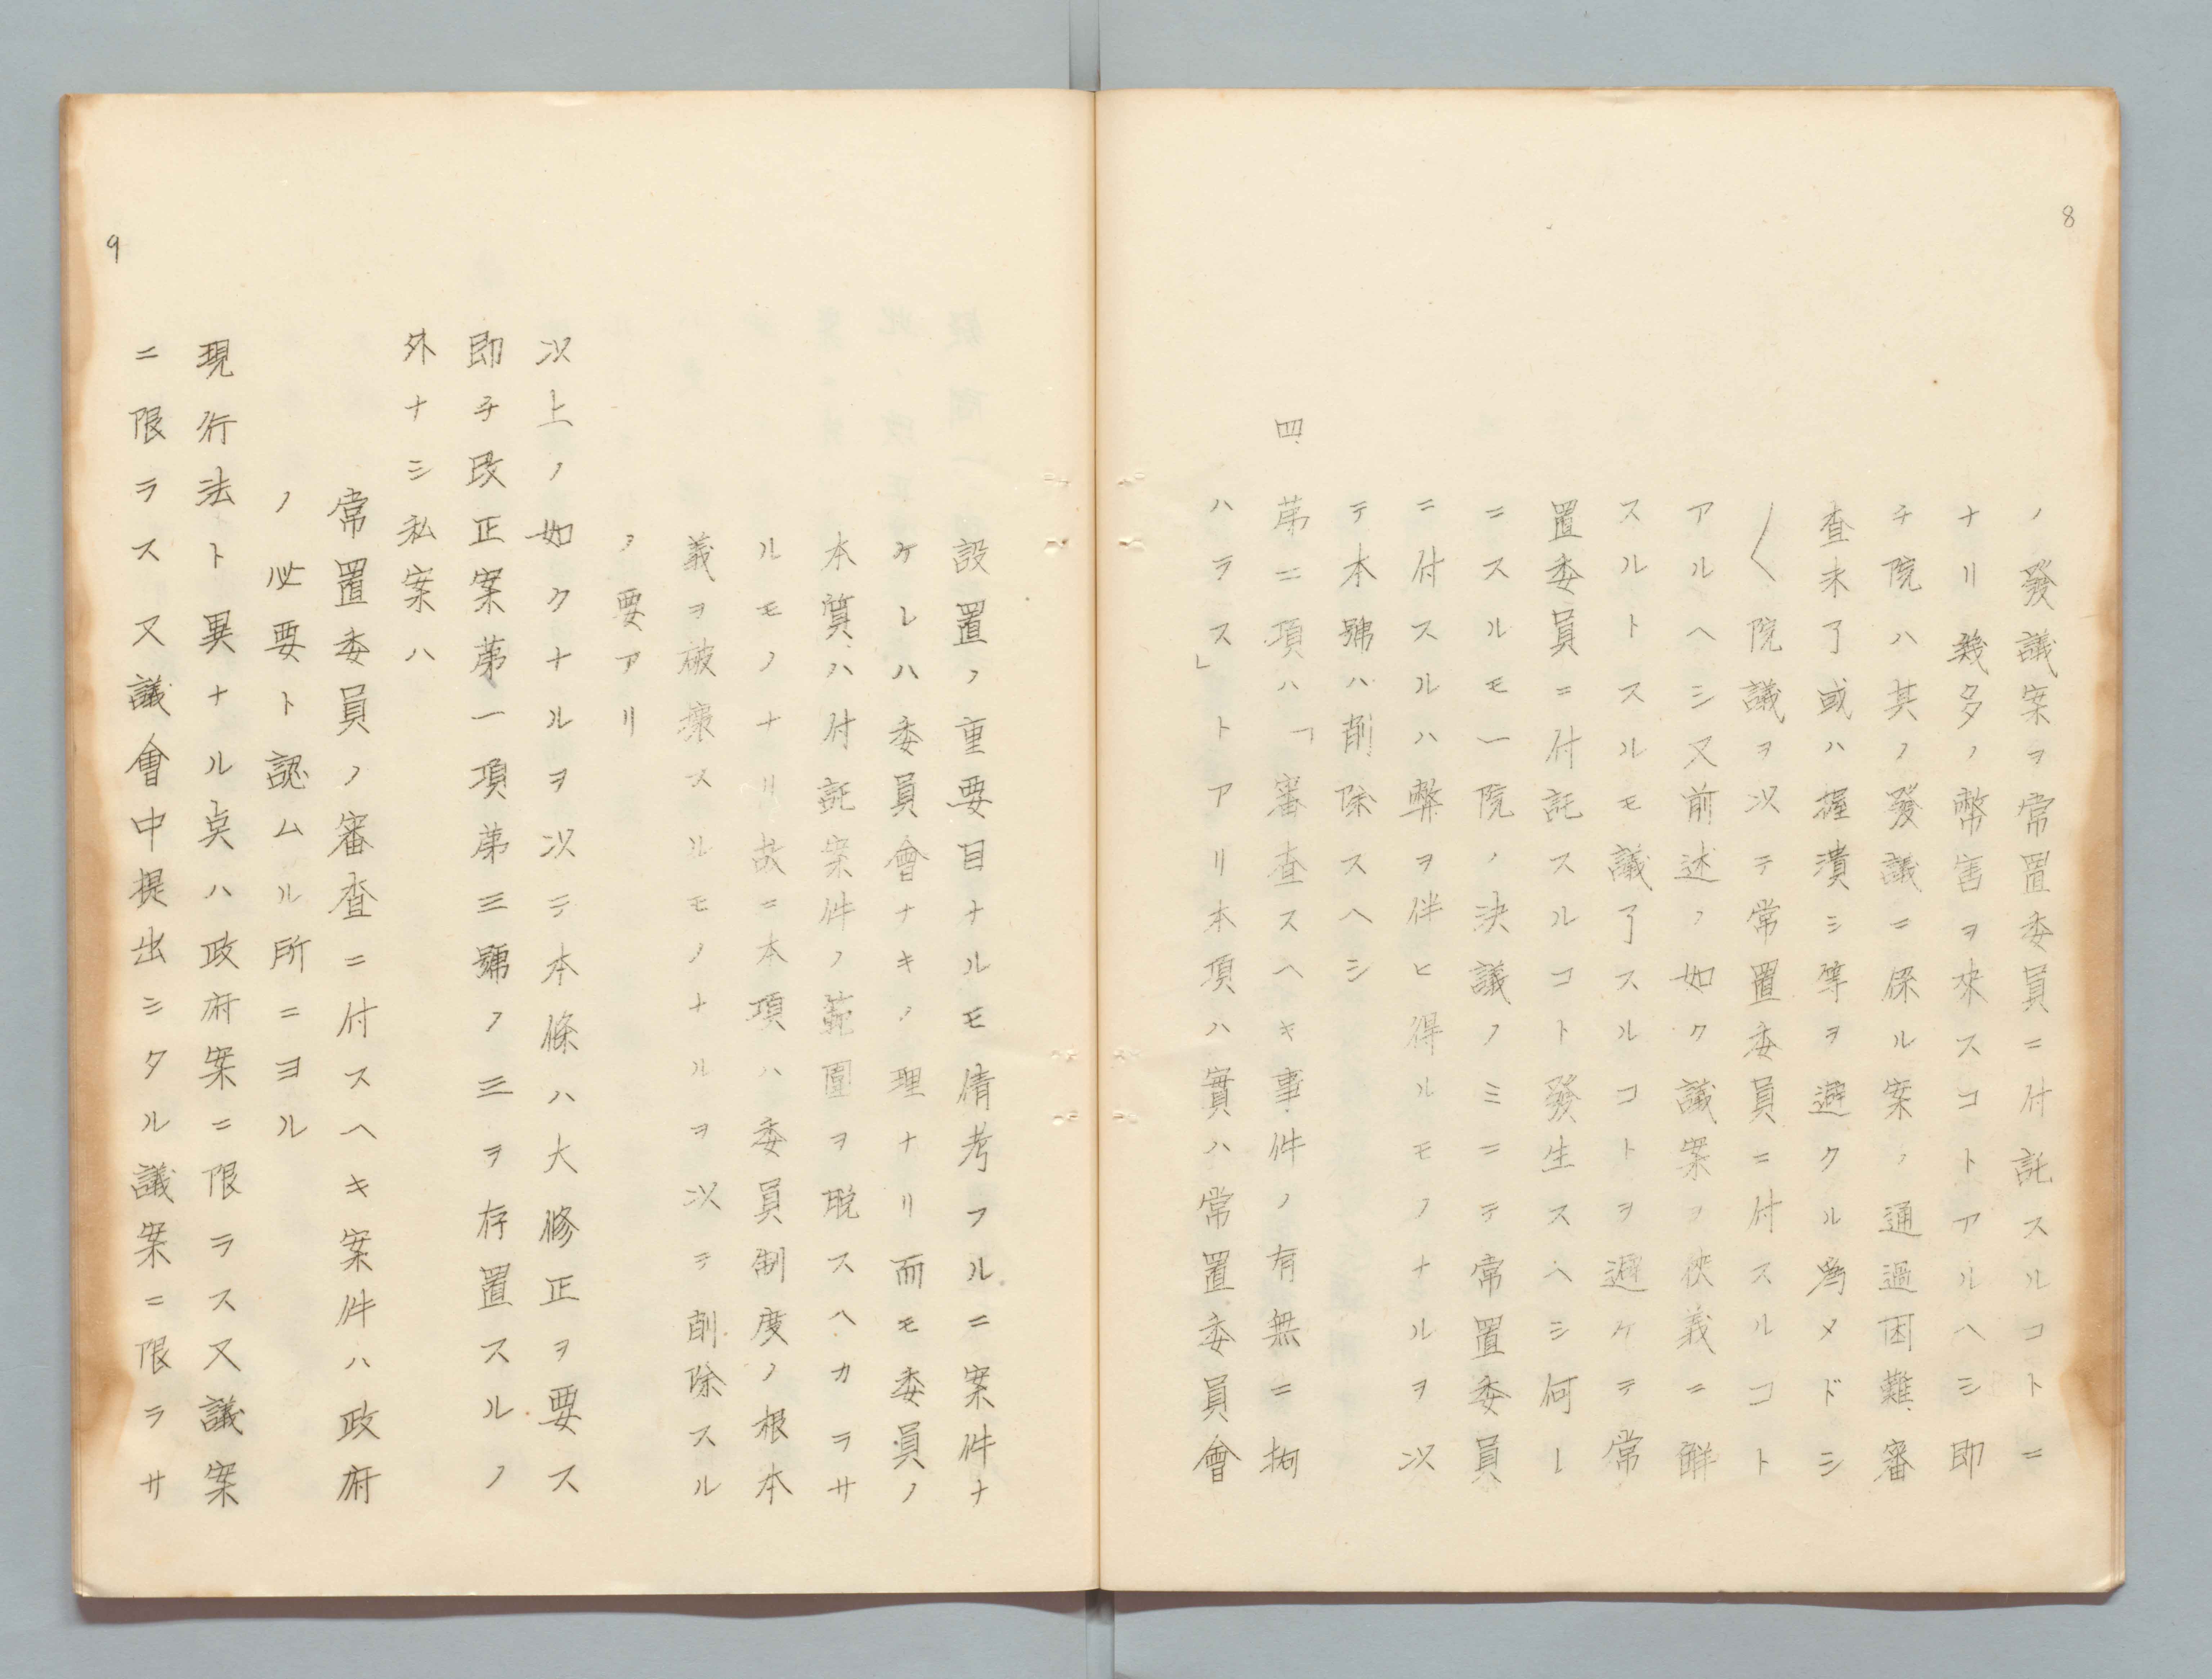 8
ノ發議案ヲ常置委員ニ付託スルコトニ
ナリ幾多ノ幣害ヲ來スコトアルヘシ即
チ院ハ其ノ發議ニ係ル案ノ通過困難審
査未了或ハ握潰シ等ヲ避クル爲メドシ
〱院議ヲ以テ常置委員ニ付スルコト
アルヘシ又前述ノ如ク議案ヲ狹義ニ解
スルトスルモ議了スルコトヲ避ケテ常
置委員ニ付託スルコト發生スヘシ何レ
ニスルモ一院ノ決議ノミニテ常置委員
ニ付スルハ弊ヲ伴ヒ得ルモノナルヲ以
テ本號ハ削除スヘシ
四、第二項ハ「審査スヘキ事件ノ有無ニ拘
ハラス」トアリ本項ハ實ハ常置委員會
設置ノ重要目ナルモ倩考フルニ案件ナ
ケレハ委員會ナキノ理ナリ而モ委員ノ
本質ハ付託案件ノ範圍ヲ脱スヘカラサ
ルモノナリ故ニ本項ハ委員制度ノ根本
義ヲ破壞スルモノナルヲ以テ削除スル
ノ要アリ
以上ノ如クナルヲ以テ本條ハ大修正ヲ要ス
即チ改正案第一項第三號ノ三ヲ存置スルノ
外ナシ私案ハ
常置委員ノ審査ニ付スヘキ案件ハ政府
ノ必要ト認ムル所ニヨル
現行法ト異ナル点ハ政府案ニ限ラス又議案
ニ限ラス又議會中提出シタル議案ニ限ラサ
9